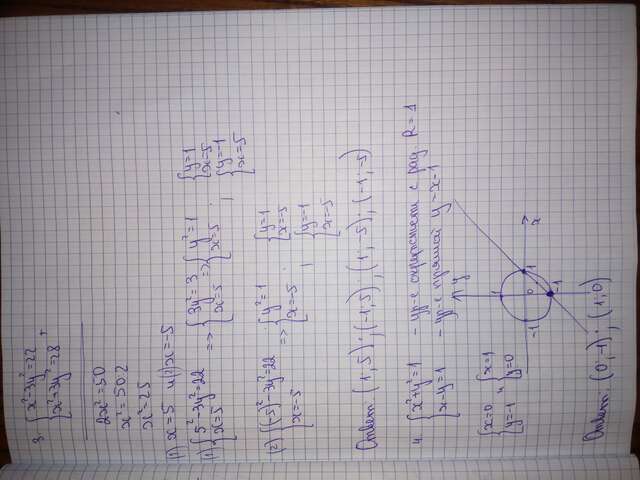 3. { x²-3y²=22
{ x²+3y²=28 +
2x²=50
x²=50:2
x²=25
(1) x=5 и (2) x=-5
(1) { 5²-3y²=22 => { 3y²=3 => { y²=1 ; { y=1
{ x=5 { x=5 { x=5 { x=5
; { y=-1
{ x=5
(2) { (-5)²-3y²=22 => { y²=1 ; { y=1
{ x=-5 { x=-5 { x=-5
; { y=-1
{ x=-5
Ответ: (1;5);(-1;5);(1;-5);(-1;-5)
4. { x²+y²=1 - ур-е окружности с рад. R=1
{ x-y=1 - ур-е прямой y=x-1
y
{ x=0 и { x=1 1
{ y=-1 { y=0
-1 0 1 x
-1
Ответ: (0;-1); (1;0)